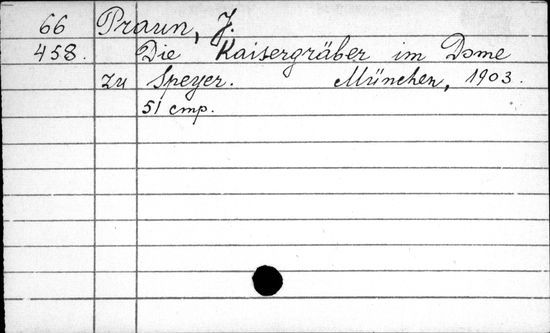 66 Praun, J.
458. Die Kaisergräber im Dome
zu Speyer. München, 1903.
51 стр.